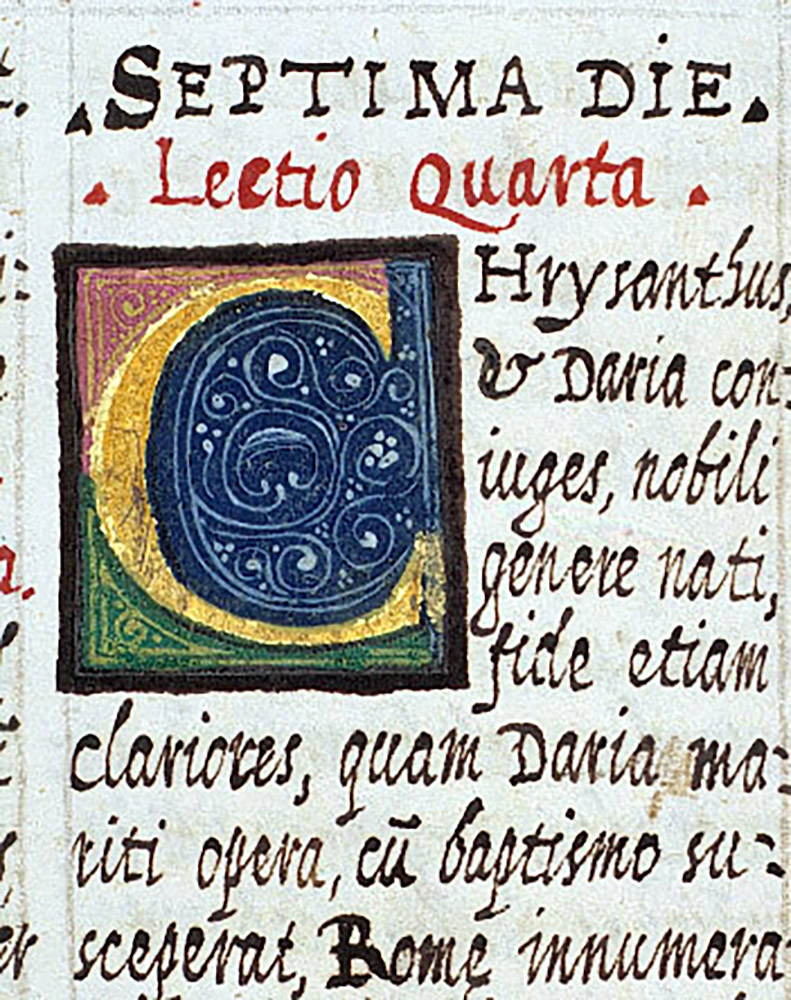 SEPTIMA DIE.
Lectio Quarta.
CHrysanthus,
& Daria con:
iuges, nobili
genere nati,
fide etiam
clariores, quam Daria ma:
riti opera, cū baptismo su:
sceperat, Romę innumera